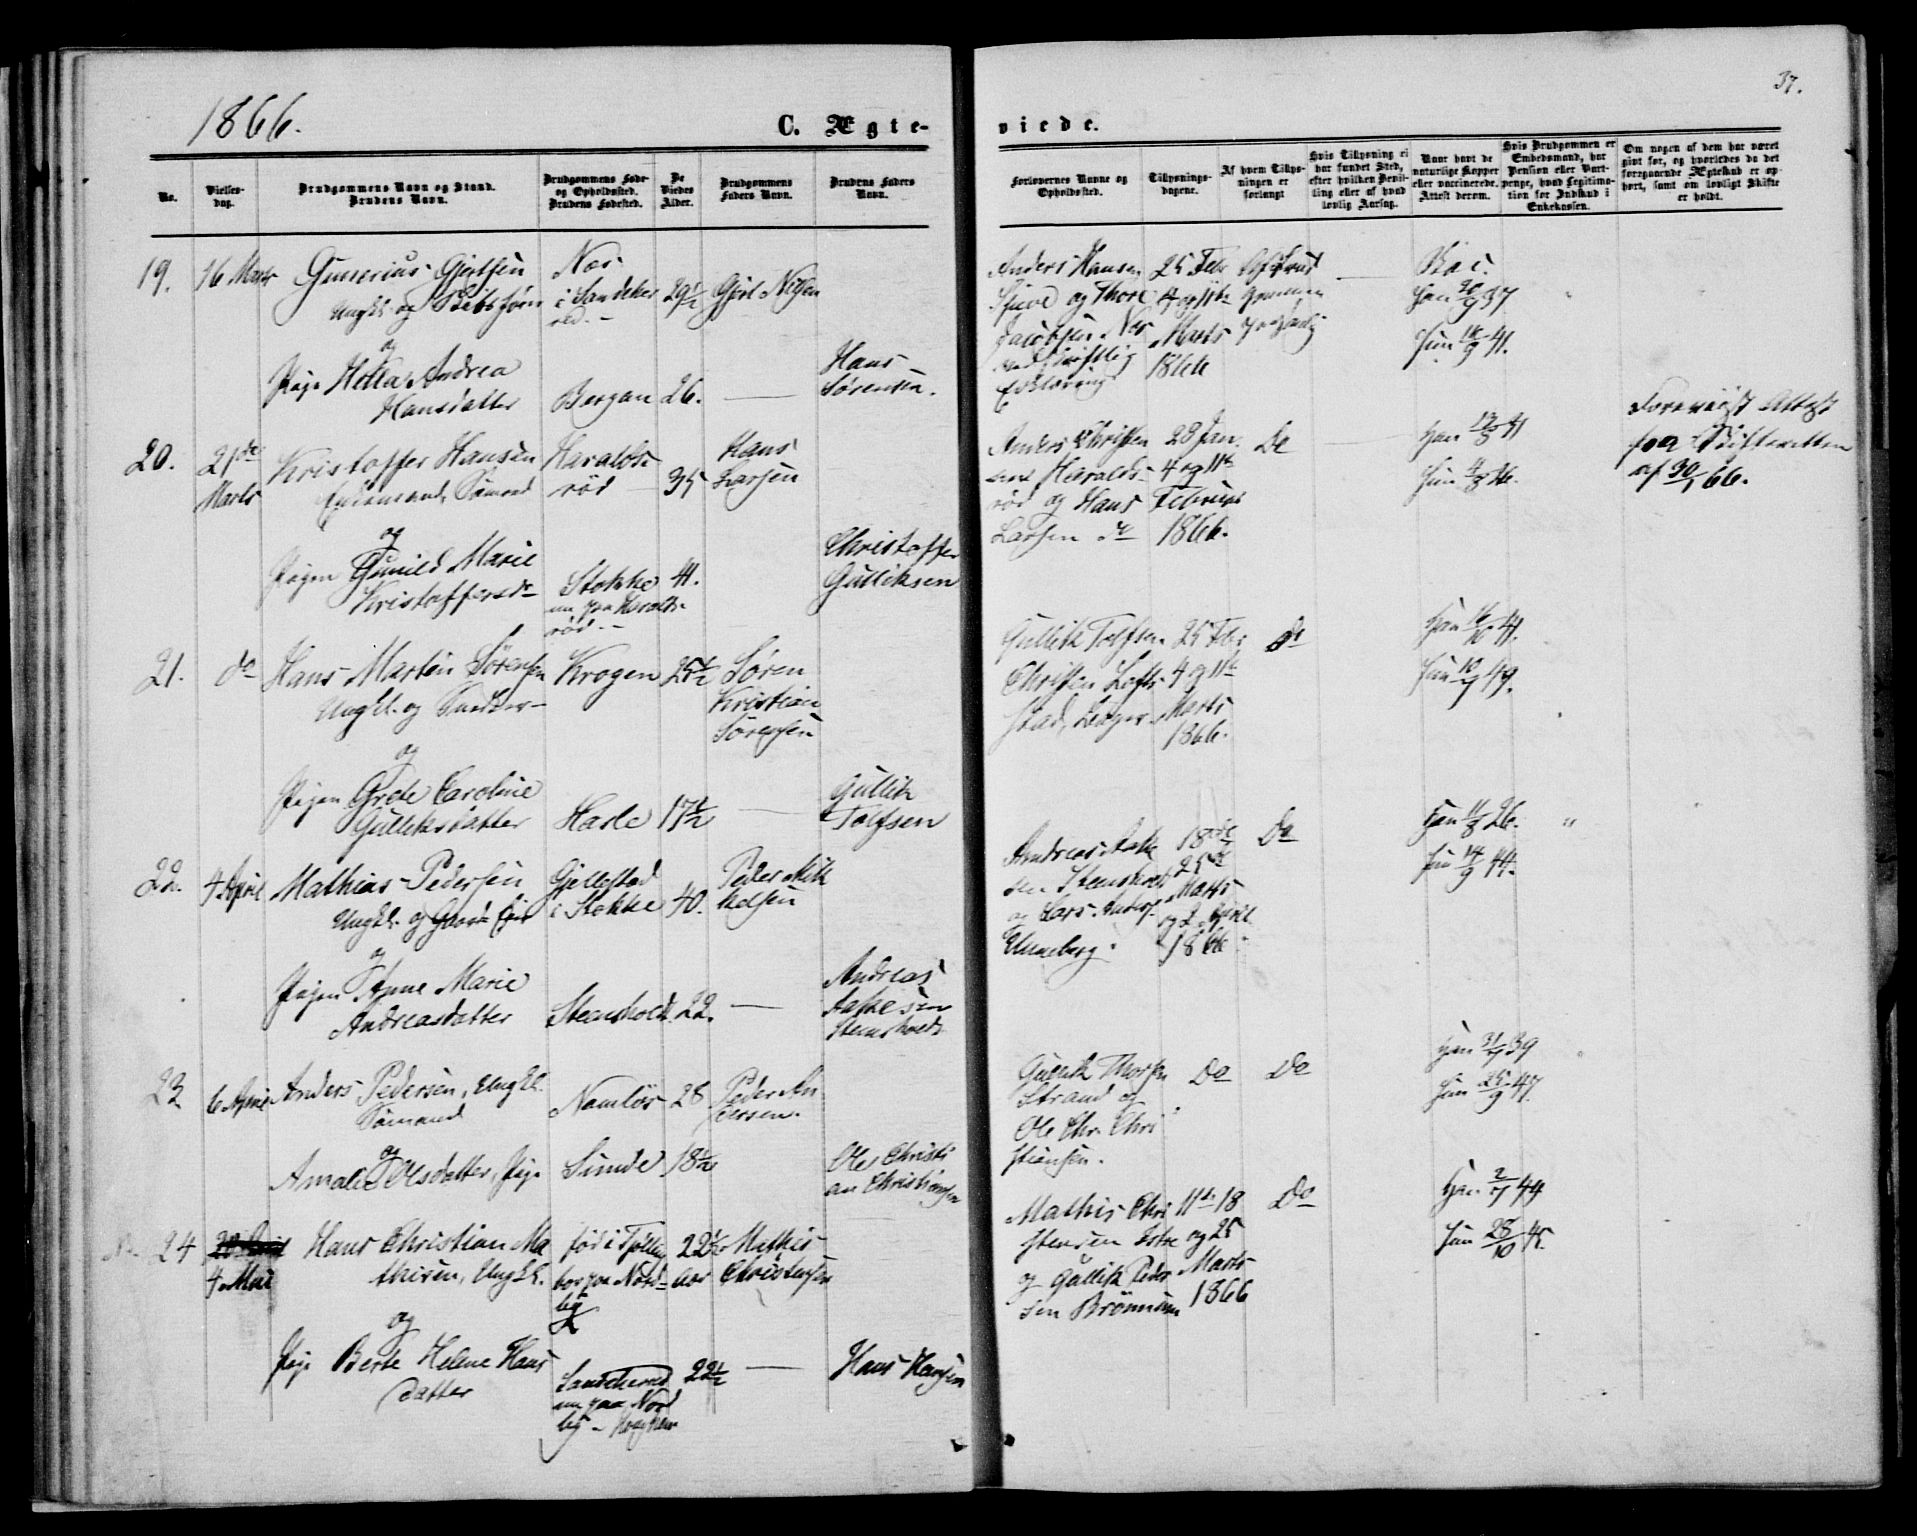 1866.
37.
C. Ægte-
viede.
No.
Vielses-
dag.
Brudgommens Navn og Stand.
Brudens Navn.
Brudgommens Føde-
og Opholdssted.
Brudens Fødested.
De
Viedes
Alder.
Brudgommens
Faders Navn.
Brudens Faders
Navn.
Forlovernes Navne og
Opholdssted.
Tillysnings-
dagene.
Af hvem Tillys-
ningen er
forlangt
Hvis Tillysning ei
har fundet Sted,
efter hvilken Bevil-
ling eller af hvad
lovlig Aarsag.
Naar havt de
naturlige Kopper
eller vaccinerede.
Attest derom.
Hvis Brudgommen er
Embedsmand, har
Pension eller Vart-
penge, hvad Legitima-
tion for Indskud i
Enkekassen.
Om nogen af dem har været
givt før, og hvorledes da det
foregaaende Ægteskab er op-
hørt, samt om lovligt Skifte
er holdt.
19.
16 Marts
Gunerius Gjertsen
Ungkl. og
og
Pige Helle Andrea
Hansdatter
Næs
i Sandeher
red.
Bergan
29½
26.
Gjert Nilsen
Hans
Sørensen.
Anders Hansen
og Thore
Jacobsen Næs
ved skriftlig
Erklæring
25 Febr
4 og 11te
Marts
1866
Vac.
Han 20/9 37
Hun 18/9 41.
20.
21de
Marts
Kristoffer Hansen
Enkemand, Sømand
og
Pigen Gunild Marie
Kristoffersdr
Haralds
rød
Stokke
nu paa Haralds-
rød.
35
41.
Hans
Larsen
Christoffer
Gulliksen
Anders Christen
sen Haralds-
rød og Hans
Larsen do
28 Jan.
4 og 11te
Februar
1866.
Do
Han 41
Hun 26.
Forevist Attest
fra Skifteretten
af 30/1 66.
21.
do
Hans Martin Sørensen
Ungkl. og
og
Pigen Grete Caroline
Gulliksdatter
Krogen
Hasle
25½
17½
Søren
Kristian
Sørensen
Gullik
Tolfsen
Gullik Tolfsen
Christen Lofts-
25 Feb.
4 og 11te
Marts
1866.
Do
Han 16/10 41.
Hun 10/7 49.
22.
4 April
Mathias Pedersen
Ungkl. og
og
Pigen Anne Marie
Andreasdatter
Gjellestad
i Stokke
Stensholdt
40.
22.
Peder Mik
kelsen
Andreas
Aakesen
Stensholdt
Andreas Aake
sen Stensholt
og Lars
Unneberg.
18de
25de
Marts
og 2 April
1866.
Do
Han 11/8 26.
Hun 14/9 44.
23
6 April
Anders Pedersen, Ungkl.
Sømand
og
Amalie Olsdatter, Pige
Namløs
Sunde
28
18½
Peder An
dersen.
Ole Christi
an Christiansen
Gullik Thorsen
Strand og
Ole Chr. Chri
stiansen.
Do
Do
Han 39
Hun 25/9 47.
24
4 Mai
Hans Christian Ma
thisen, Ungkl.
og
Pige Berte Helene Hans
datter
født i Tjølling
bor paa Nord-
by
Sandeherred
nu paa Nord
by
22½
Aar
22½
Mathis
Christensen
Hans Hansen
Mathis Chri
stensen Istre
og Gullik Peder
sen Brønnum
11te 18
og 25
Marts
1866
Do
Han 2/7 44
Hun 28/10 45.